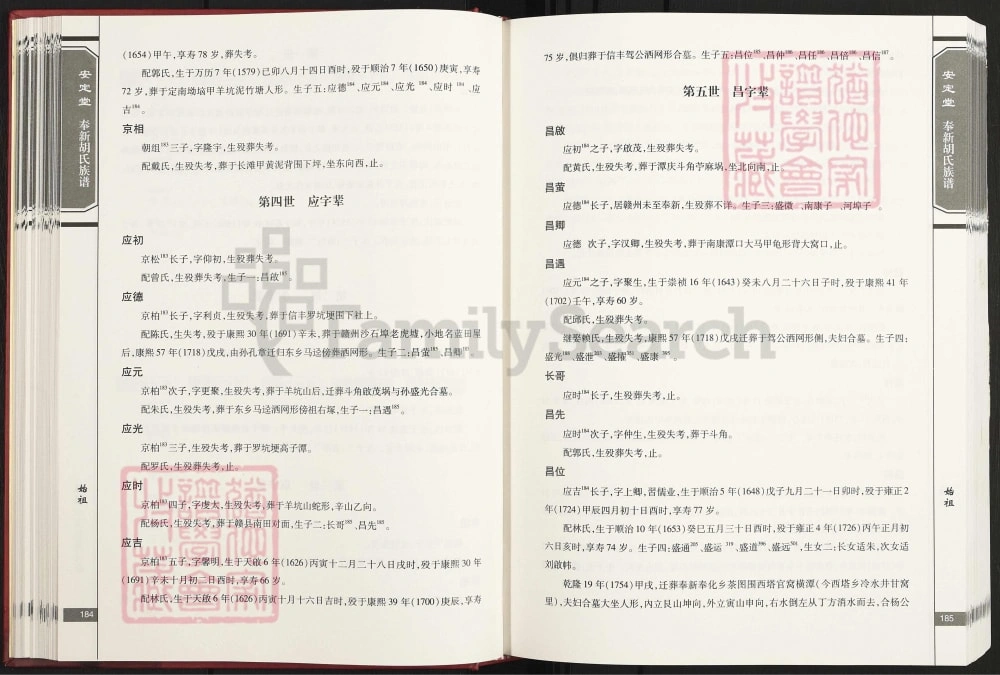 安定堂 奉新胡氏族谱
始祖
184
(1654)甲午,享寿78岁,葬失考。
配郭氏,生于万历7年(1579)己卯八月十四日酉时,殁于顺治7年(1650)庚寅,享寿
72岁,葬于定南坳塥甲羊坑泥竹塘人形。生子五:应德184、应元184、应光184、应时184、应
吉184。
京相
朝组183三子,字隆宇,生殁葬失考。
配戴氏,生殁失考,葬于长滩甲黄泥背围下坪,坐东向西,止。
第四世 应字辈
应初
京松183长子,字仰初,生殁葬失考。
配曾氏,生殁葬失考,生子一:昌啟185。
应德
京柏183长子,字利贞,生殁失考,葬于信丰罗坑埂围下社上。
配陈氏,生失考,殁于康熙30年(1691)辛未,葬于赣州沙石埠老虎墟,小地名蓝田屋
后,康熙57年(1718)戊戌,由孙孔章迁归东乡马迳傍葬洒网形。生子二:昌萤185、昌卿185。
应元
京柏183次子,字更聚,生殁失考,葬于羊坑山后,迁葬斗角啟茂埚与孙盛光合墓。
配朱氏,生殁失考,葬于东乡马迳洒网形傍祖右塚,生子一:昌遇185。
应光
京柏183三子,生殁失考,葬于罗坑埂高子潭。
配罗氏,生殁葬失考,止。
应时
京柏183四子,字虔太,生殁失考,葬于羊坑山蛇形,辛山乙向。
配杨氏,生殁失考,葬于赣县南田对面,生子二:长哥185、昌先185。
应吉
京柏183五子,字馨明,生于天啟6年(1626)丙寅十二月二十八日戌时,殁于康熙30年
(1691)辛未十月初二日酉时,享寿66岁。
配林氏,生于天啟6年(1626)丙寅十月十六日吉时,殁于康熙39年(1700)庚辰,享寿
75岁,俱归葬于信丰驾公洒网形合墓。生子五:昌位185、昌仲186、昌任186、昌倍186、昌信187。
第五世 昌字辈
昌啟
应初184之子,字啟茂,生殁葬失考。
配黄氏,生殁失考,葬于潭庆斗角苧麻埚,坐北向南,止。
昌萤
应德184长子,居赣州未至奉新,生殁葬不详。生子三:盛微、南康子、河埠子。
昌卿
应德 次子,字汉卿,生殁失考,葬于南康潭口大马甲龟形背大窝口,止。
昌遇
应元184之子,字聚生,生于崇祯16年(1643)癸未八月二十六日子时,殁于康熙41年
(1702)壬午,享寿60岁。
配邱氏,生殁葬失考。
继娶赖氏,生殁失考,康熙57年(1718)戊戌迁葬于驾公洒网形侧,夫妇合墓。生子四:
盛光188、盛泄、盛摧、盛康。
长哥
应时184长子,生殁葬失考,止。
昌先
应时184次子,字仲生,生殁失考,葬于斗角。
配郭氏,生殁葬失考,止。
昌位
应吉184长子,字上卿,習儒业,生于顺治5年(1648)戊子九月二十一日卯时,殁于雍正2
年(1724)甲辰四月初十日酉时,享寿77岁。
配林氏,生于顺治10年(1653)癸巳五月三十日酉时,殁于雍正4年(1726)丙午正月初
六日亥时,享寿74岁。生子四:盛通、盛运319、盛道396、盛远501,生女二:长女适朱,次女适
刘啟帏。
乾隆19年(1754)甲戌,迁葬奉新奉化乡茶图围西塔官窝横潭(今西塔乡冷水井甘窝
里),夫妇合墓大坐人形,内立艮山坤向,外立寅山申向,右水倒左从丁方消水而去,合杨公
安定堂 奉新胡氏族谱
始祖
185
FamilySearch